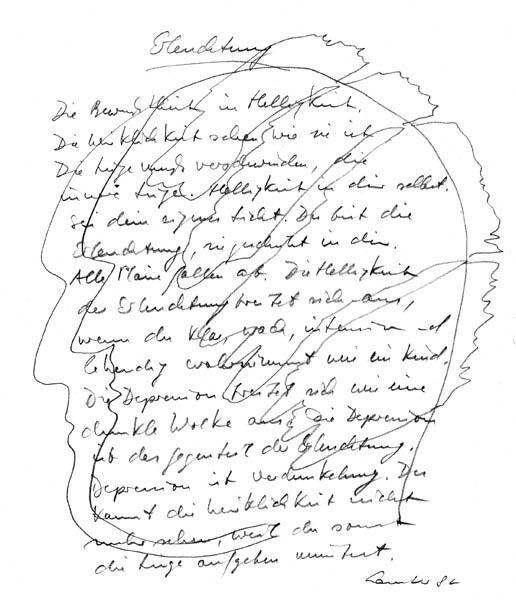 Erleuchtung
Die Bewußtheit ist Helligkeit.
Die Wirklichkeit sehen, wie sie ist
Die Lüge muß verschwinden, die
innere Lüge. Helligkeit in dir selbst.
Sei dein eigenes Licht. Du bist die
Erleuchtung, sie in dir.
Alle Pläne fallen ab. Die Helligkeit
der Erleuchtung breitet sich aus,
wenn du klar, wach, intensiv und
lebendig wahrnimmst wie ein Kind.
Die Depression breitet sich wie eine
dunkle Wolke aus. Die Depression
ist das Gegenteil der Erleuchtung.
Depression ist Verdunkelung. Du
kannst die Wirklichkeit nicht
mehr sehen, weil du sonst
die Lüge aufgeben müsstest.